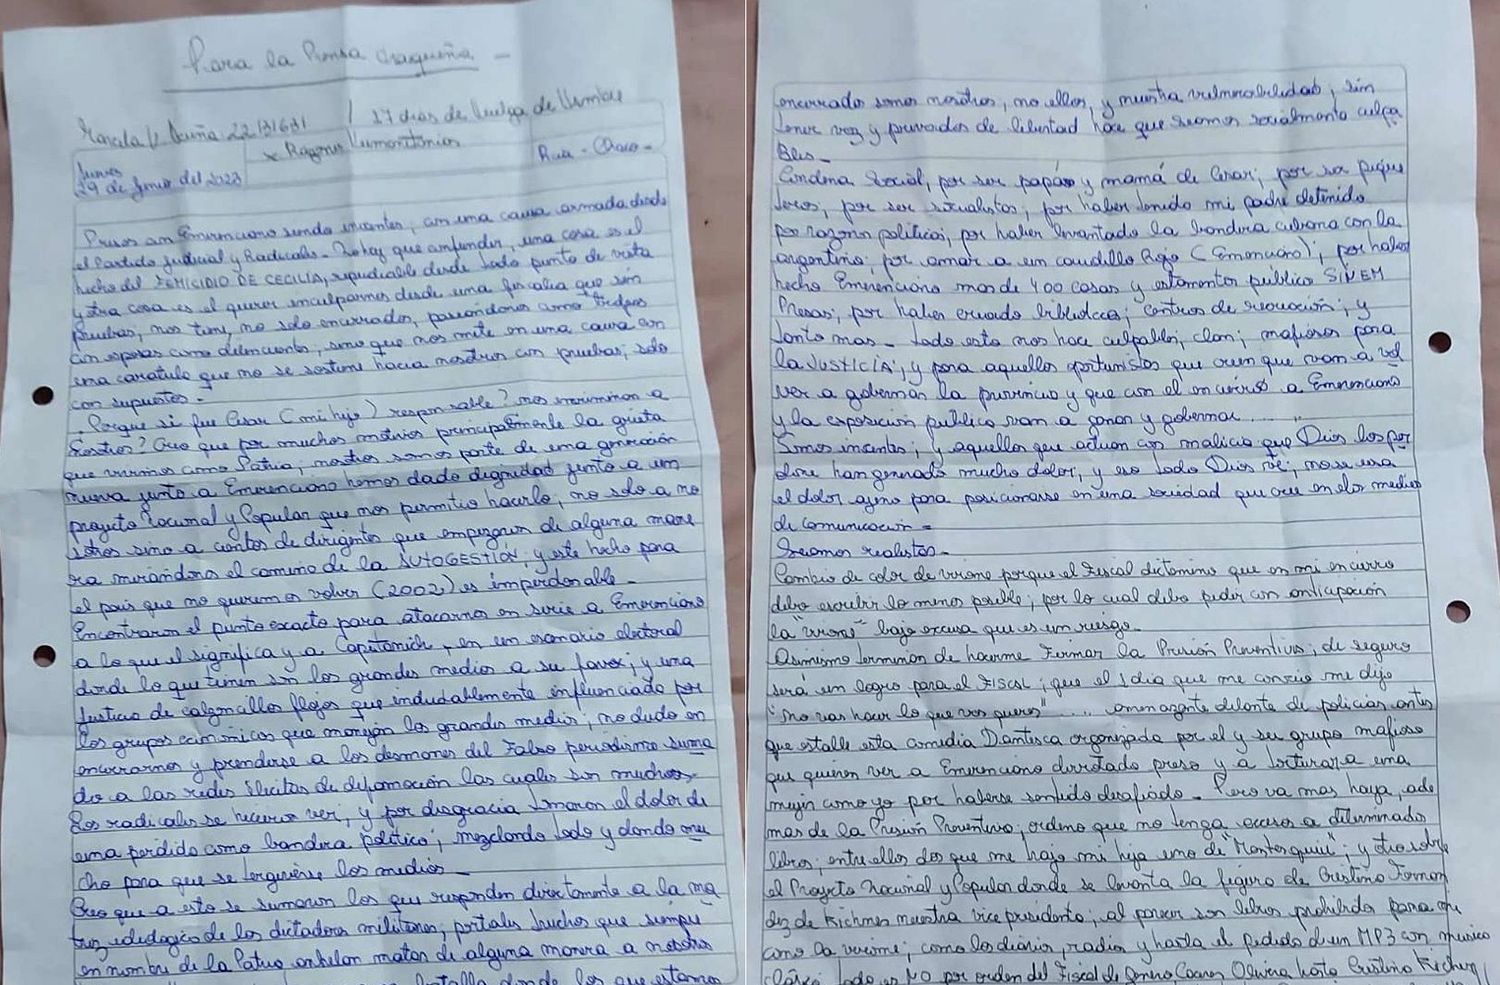 Para la Prensa Chaqueña -
Marcela V. Acuña 22131631 / 17 dias de Huelga de Hambre
x Razones Humanitarias
Rcia - Chaco -
Jueves
29 de Junio del 2023
Presos con Emerenciano siendo inocentes, con una causa armada desde
el Partido Judicial y Radicales - No hay que confundir, una cosa es el
hecho del FEMICIDIO DE CECILIA, repudiable desde todo punto de vista
y otra cosa es el querer inculparnos desde una fiscalia que sin
pruebas, nos tiene, no solo encerrados, paseandonos como trofeos
con esposas como delincuentes, sino que nos mete en una causa con
una caratula que no se sostiene hacia nosotros con pruebas, solo
con supuestos -
Porque si fue Cesar (mi hijo) responsable? nos incriminan a
nosotros? Creo que por muchos motivos principalmente la grieta
que vivimos como Patria, nosotros somos parte de una generación
nueva junto a Emerenciano hemos dado dignidad junto a un
proyecto Nacional y Popular que nos permitio hacerlo, no solo a no
sotros sino a cientos de dirigentes que empezaron de alguna mane
ra mirándonos el camino de la AUTOGESTIÓN, y este hecho para
el pais que no queremos volver (2002) es imperdonable -
Encontraron el punto exacto para atacarnos en serie a Emerenciano
a lo que el significa y a Capitanich, en un escenario electoral
donde lo que tienen son los grandes medios a su favor, y una
Justicia de calzoncillos flojos que indudablemente influenciado por
los grupos economicos que manejan los grandes medios, no dudo en
encerrarnos y prenderse a los desmanes del Falso periodismo suma
do a las redes ilicitas de difamación las cuales son muchas,
los radicales se hicieron ver, y por desgracia tomaron el dolor de
una perdida como bandera politica, mezclando todo y dando mu
cho para que se tergiverse los medios -
Creo que a esto se sumaron los que responden directamente a la ma
triz ideologica de los dictadores militares, portales truchos que siempre
en nombre de la Patria anhelan matar de alguna manera a nosotros
donde los que estamos
encerrados somos nosotros, no ellos, y nuestra vulnerabilidad, sin
tener voz y privados de libertad hace que seamos socialmente culpa
bles -
Condena Social, por ser papá y mamá de Cesar, por ser pique
teros, por ser socialistas, por haber tenido mi padre detenido
por razones politicas, por haber levantado la bandera cubana con la
argentina, por amar a un caudillo Rojo (Emerenciano), por haber
hecho Emerenciano mas de 400 casas y estamentos público SIVEM
Mesas, por haber creado bibliotecas, centros de recreación, y
tanto mas - todo esto nos hace culpables, clan, mafiosos para
la JUSTICIA, y para aquellos oportunistas que creen que van a vol
ver a gobernar la provincia y que con el encierro a Emerenciano
y la exposición publica van a ganar y gobernar.........
Somos inocentes, y aquellos que actuan con malicia que Dios los per
done han generado mucho dolor, y eso todo Dios ve, no se usa
el dolor ajeno para posicionarse en una sociedad que cree en los medios
de comunicación =
Seamos realistas -
Cambio de color de birome porque el Fiscal dictamino que en mi encierro
debo escribir lo menos posible, por lo cual debo pedir con anticipación
la "birome" bajo excusa que es un riesgo
Asimismo terminan de hacerme Firmar la Prisión Preventiva, de seguro
será un logro para el Fiscal, que el 1 dia que me conocio me dijo
"no vas hacer lo que vos queres".... amenazante delante de policias antes
que estalle esta comedia Dantesca organizada por el y su grupo mafioso
que quieren ver a Emerenciano derrotado preso y a torturar a una
mujer como yo por haberse sentido desafiado - Pero va mas haya, ade
mas de la Presión Preventiva, ordeno que no tenga acceso a determinados
libros, entre ellos dos que me trajo mi hija uno de "Montesquieu", y otro sobre
el Proyecto Nacional y Popular donde se levanta la figura de Cristina Fernan
dez de Kichner nuestra vice presidenta, al parecer son libros prohibidos para mi
como la birome, como los diarios, radios y hasta el pedido de un MP3 con musica
Clásica todo es NO por orden del Fiscal de Genero Caceres Olivera hasta Cristina Kichner